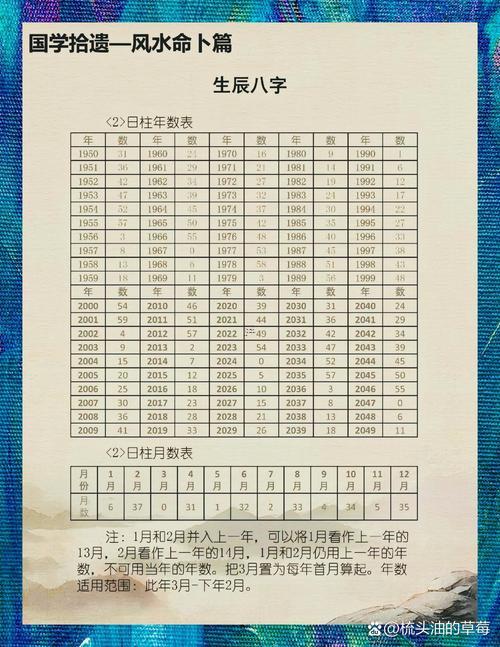 国学拾遗—风水命卜篇
生辰八字
<2>日柱年数表
年 数 年 数 年 数 年 数 年 数
1950 31 1960 24 1970 16 1980 9 1990 1
1951 36 1961 29 1971 21 1981 14 1991 6
1952 42 1962 34 1972 27 1982 19 1992 12
1953 47 1963 39 1973 32 1983 24 1993 17
1954 52 1964 45 1974 37 1984 30 1994 22
1955 57 1965 50 1975 42 1985 35 1995 27
1956 3 1966 55 1976 48 1986 40 1996 33
1957 8 1967 0 1977 53 1987 45 1997 38
1958 13 1968 6 1978 58 1988 51 1998 43
1959 18 1969 11 1979 3 1989 56 1999 48
年 数 年 数 年 数 年 数 年 数
2000 54 2010 46 2020 39 2030 31 2040 24
2001 59 2011 51 2021 44 2031 36 2041 29
2002 4 2012 57 2022 49 2032 42 2042 34
2003 9 2013 2 2023 54 2033 47 2043 39
2004 15 2014 7 2024 0 2034 52 2044 45
2005 20 2015 12 2025 5 2035 57 2045 50
2006 25 2016 18 2026 10 2036 3 2046 55
2007 30 2017 23 2027 15 2037 8 2047 0
2008 36 2018 28 2028 21 2038 13 2048 6
2009 41 2019 33 2029 26 2039 18 2049 11
<2>日柱月数表
月份 1月 2月 3月 4月 5月 6月 7月 8月 9月 10月 11月 12月
月数 6 37 0 31 1 32 2 33 4 34 5 35
注：1月和2月并入上一年，可以将1月看作上一年的
13月，2月看作上一年的14月，1月和2月仍用上一年的年
数，不可用当年的年数。把3月置为每年首月算起。年数
适用范围：此年3月-下年2月。
@梳头油的草莓